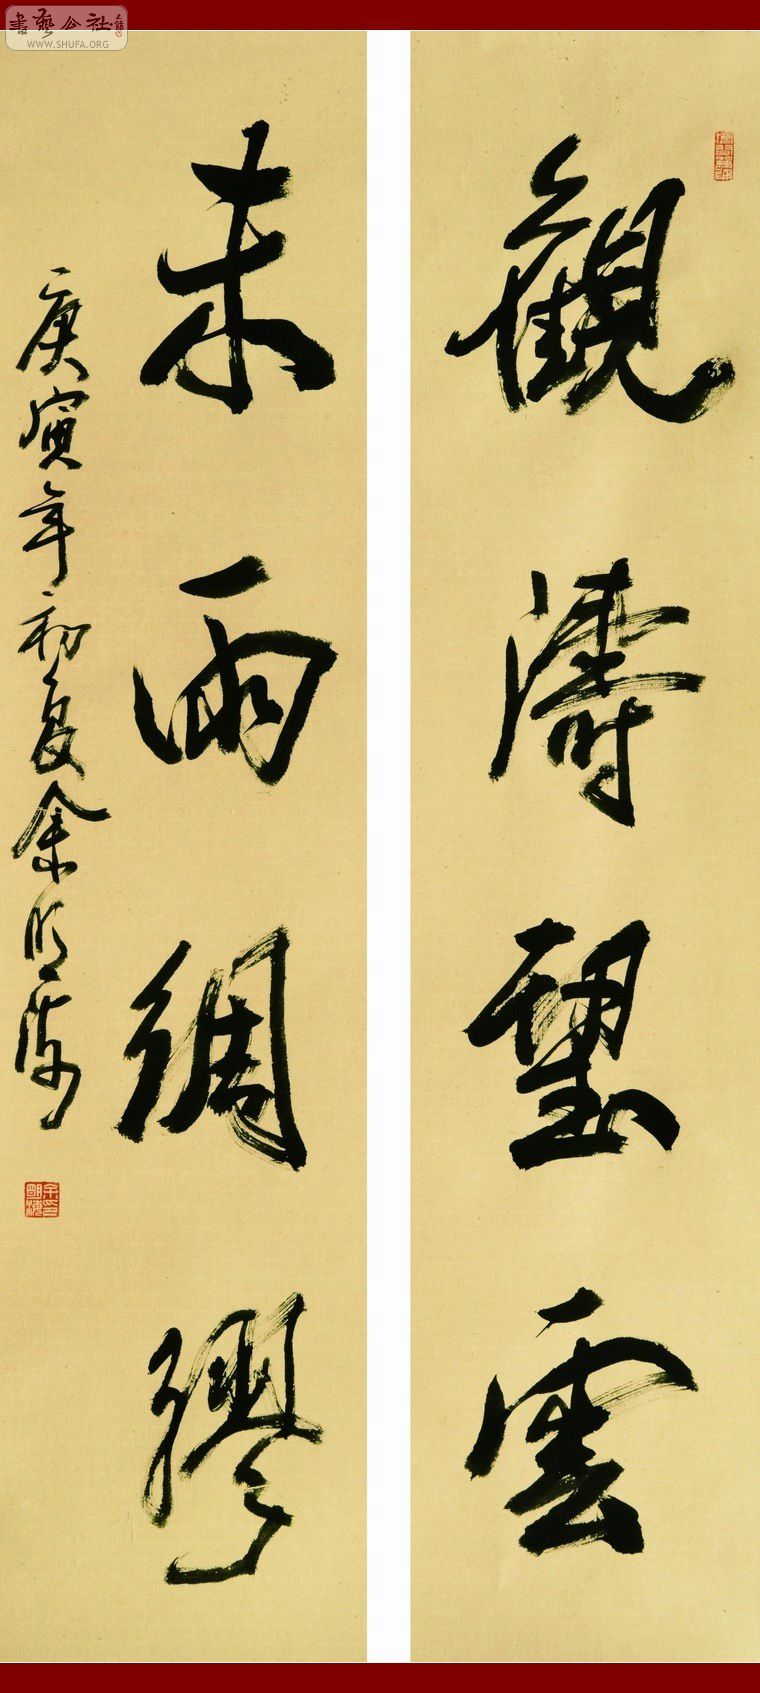 書藝公社
WWW.SHUFA.ORG
觀濤望雲
未雨綢繆
庚寅年初夏余明海